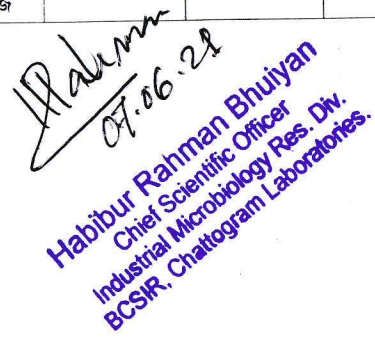 Rahman
07.06.21
Habibur Rahman Bhuiyan
Chief Scientific Officer
Industrial Microbiology Res. Div.
BCSIR, Chattogram Laboratories.